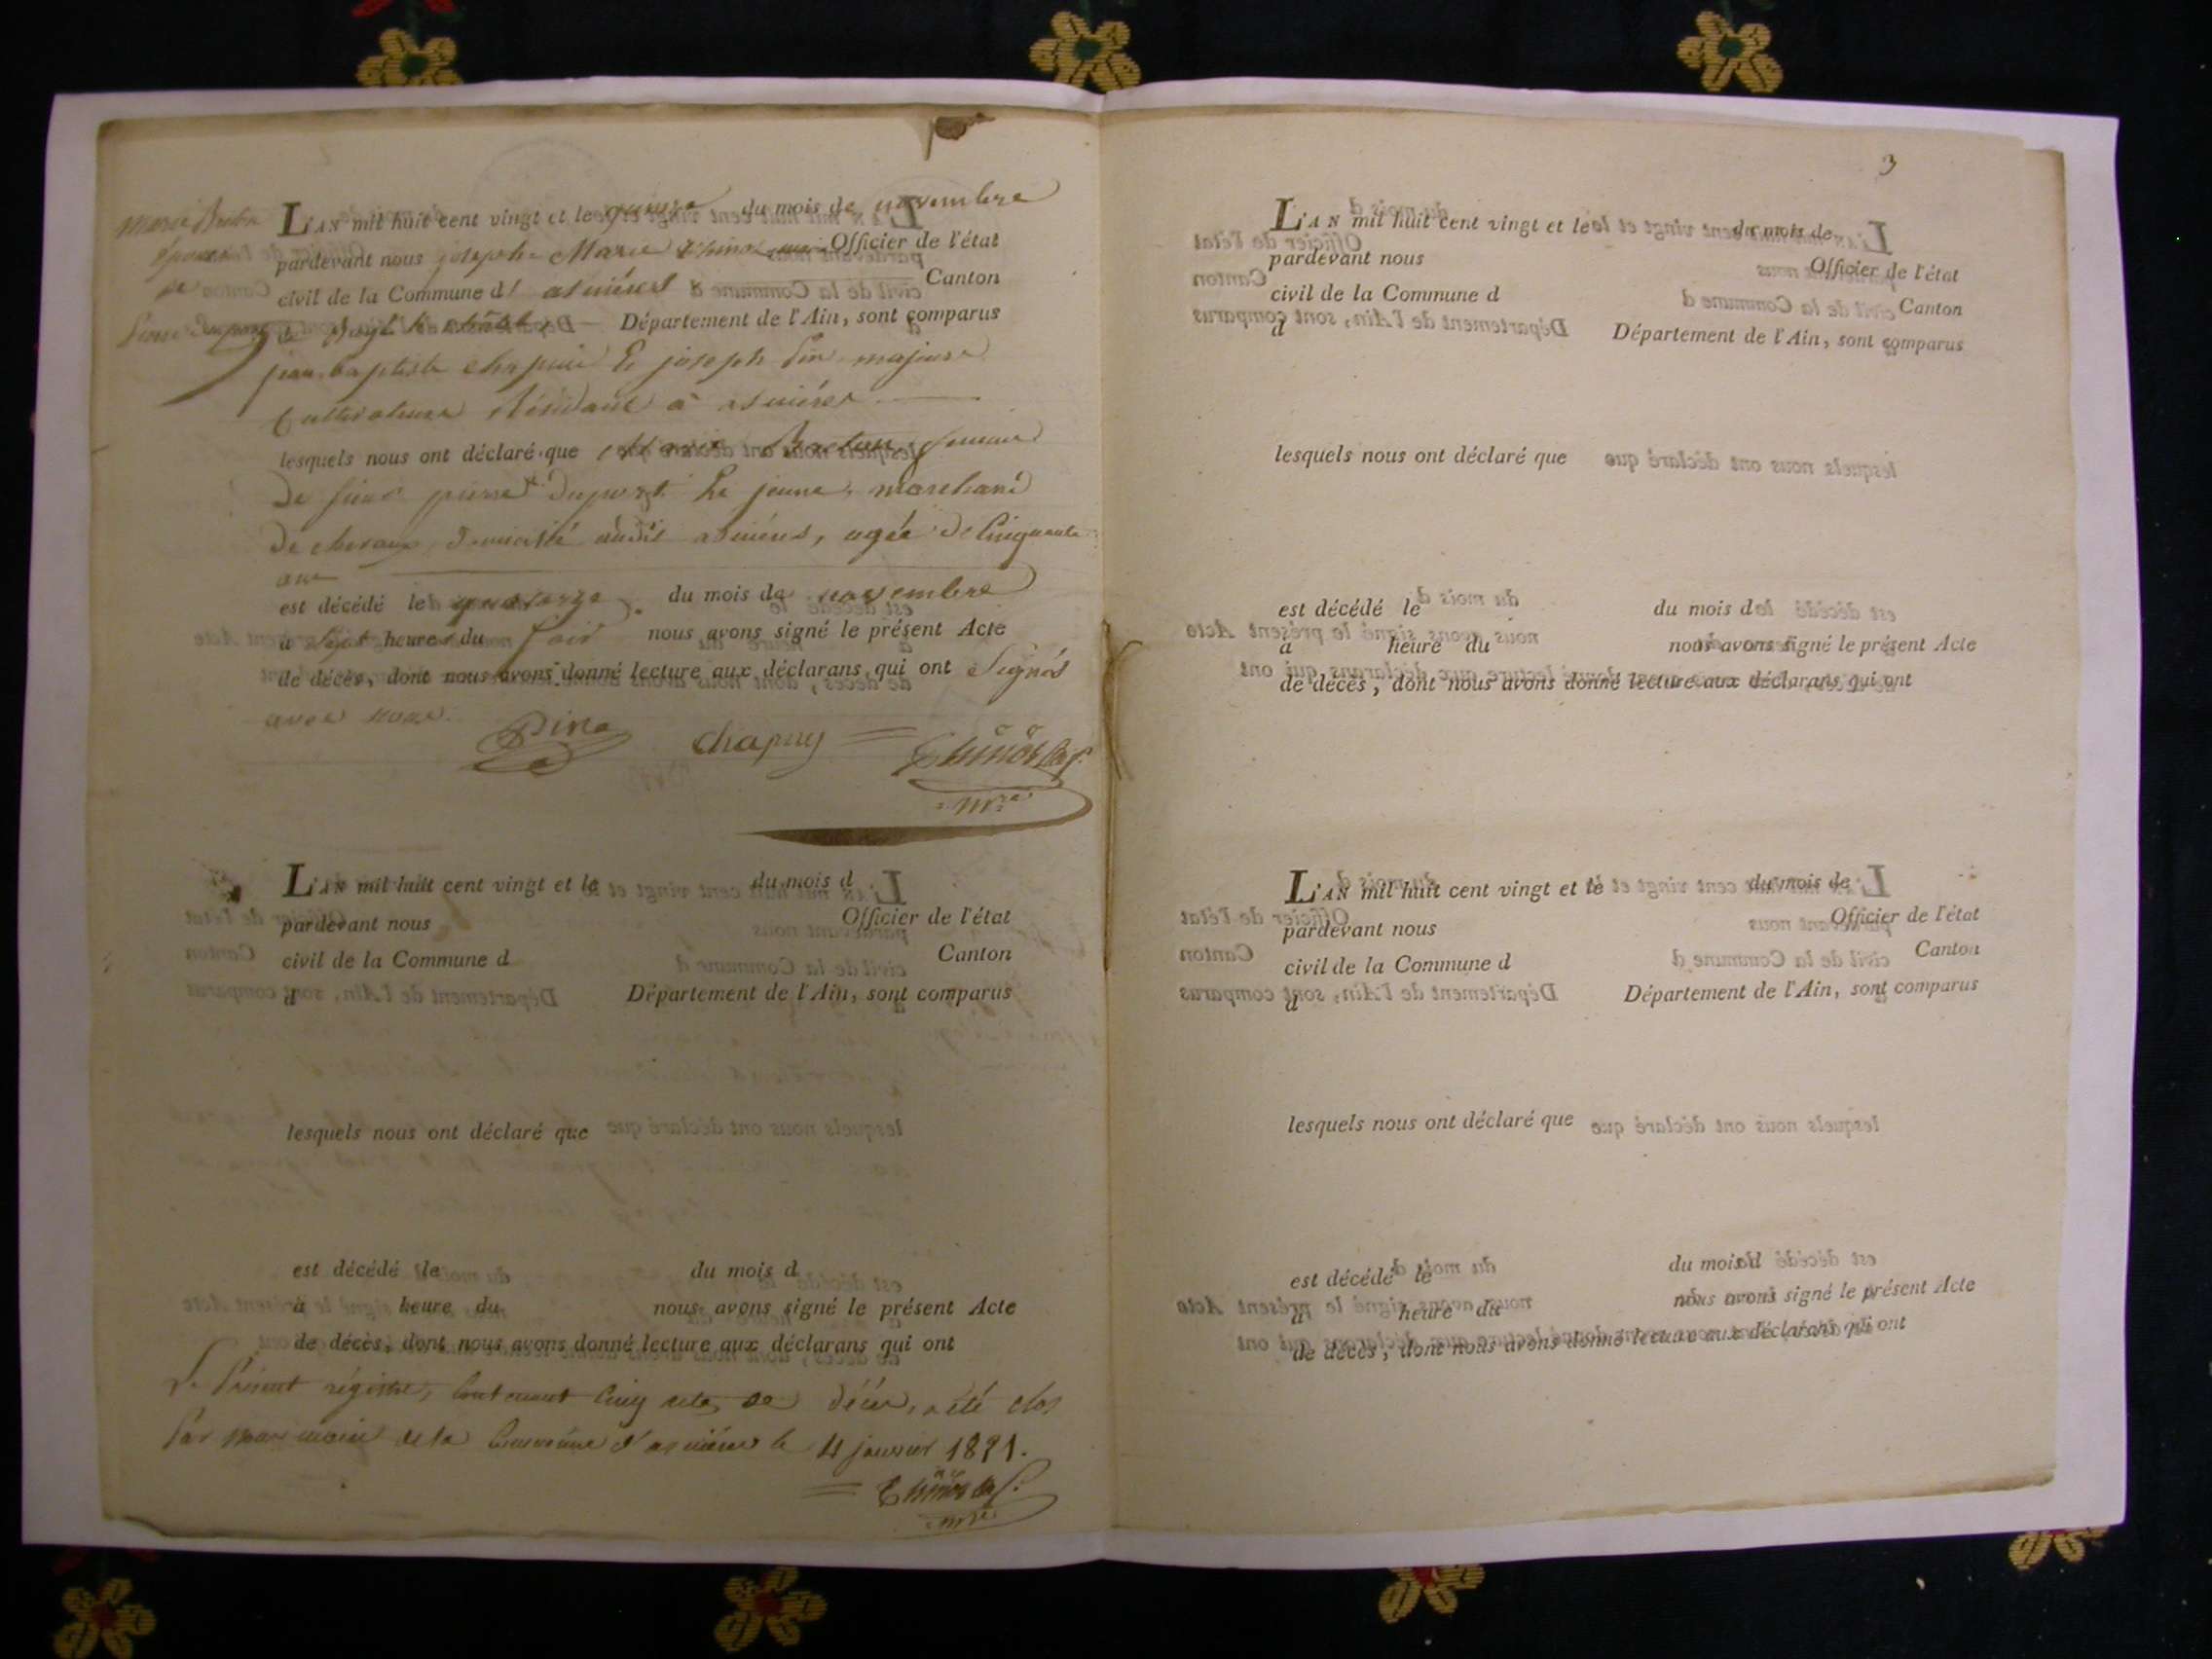 Marie Breton
épouse
de
pierre Duport
L'AN mil huit cent vingt et le quinze du mois de novembre
pardevant nous joseph Marie Officier de l'état
civil de la Commune d' asnières Canton
de Bagé le châtel Département de l'Ain, sont comparus
jean baptiste chapuis & joseph Pin majeurs
Cultivateurs Résidant à asnières
lesquels nous ont déclaré que Marie Breton, femme
De sieur pierre Duport Le jeune, marchand
De chevaux, domicilié audit asnières, agée de Cinquante
ans
est décédé le quatorze du mois de novembre
à sept heures du soir nous avons signé le présent Acte
de décès, dont nous avons donné lecture aux déclarans qui ont Signés
avec nous.
Pin chapuy
mre
L'AN mil huit cent vingt et le du mois d
pardevant nous Officier de l'état
civil de la Commune d Canton
d Département de l'Ain, sont comparus
lesquels nous ont déclaré que
est décédé le du mois d
à heure du nous avons signé le présent Acte
de décès, dont nous avons donné lecture aux déclarans qui ont
Le Présent régistre, Contenant Cinq actes de Décès, a été clos
Par nous maire de la Commune d'asnières le 4 janvier 1821.
mre
3
L'AN mil huit cent vingt et le du mois de
pardevant nous Officier de l'état
civil de la Commune d Canton
d Département de l'Ain, sont comparus
lesquels nous ont déclaré que
est décédé le du mois d
à heure du nous avons signé le présent Acte
de décès, dont nous avons donné lecture aux déclarans qui ont
L'AN mil huit cent vingt et le du mois de
pardevant nous Officier de l'état
civil de la Commune d Canton
d Département de l'Ain, sont comparus
lesquels nous ont déclaré que
est décédé le du mois d
à heure du nous avons signé le présent Acte
de décès, dont nous avons donné lecture aux déclarans qui ont